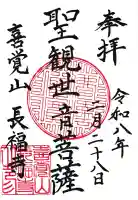 奉拝
令和八年
二月二十八日
聖観世音菩薩
喜覚山 長福寺